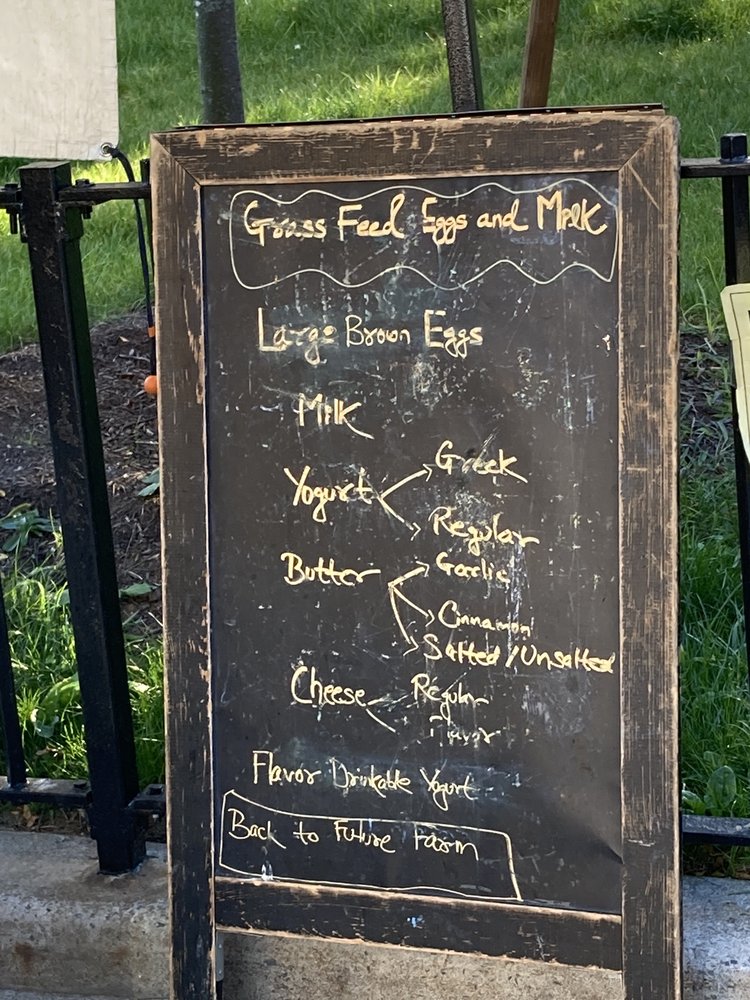 Grass Feed Eggs and Milk
Large Brown Eggs
Milk
Yogurt
Greek
Regular
Butter
Garlic
Cinnamon
Salted/Unsalted
Cheese
Regular
Flavor
Flavor Drinkable Yogurt
Back to Future Farm